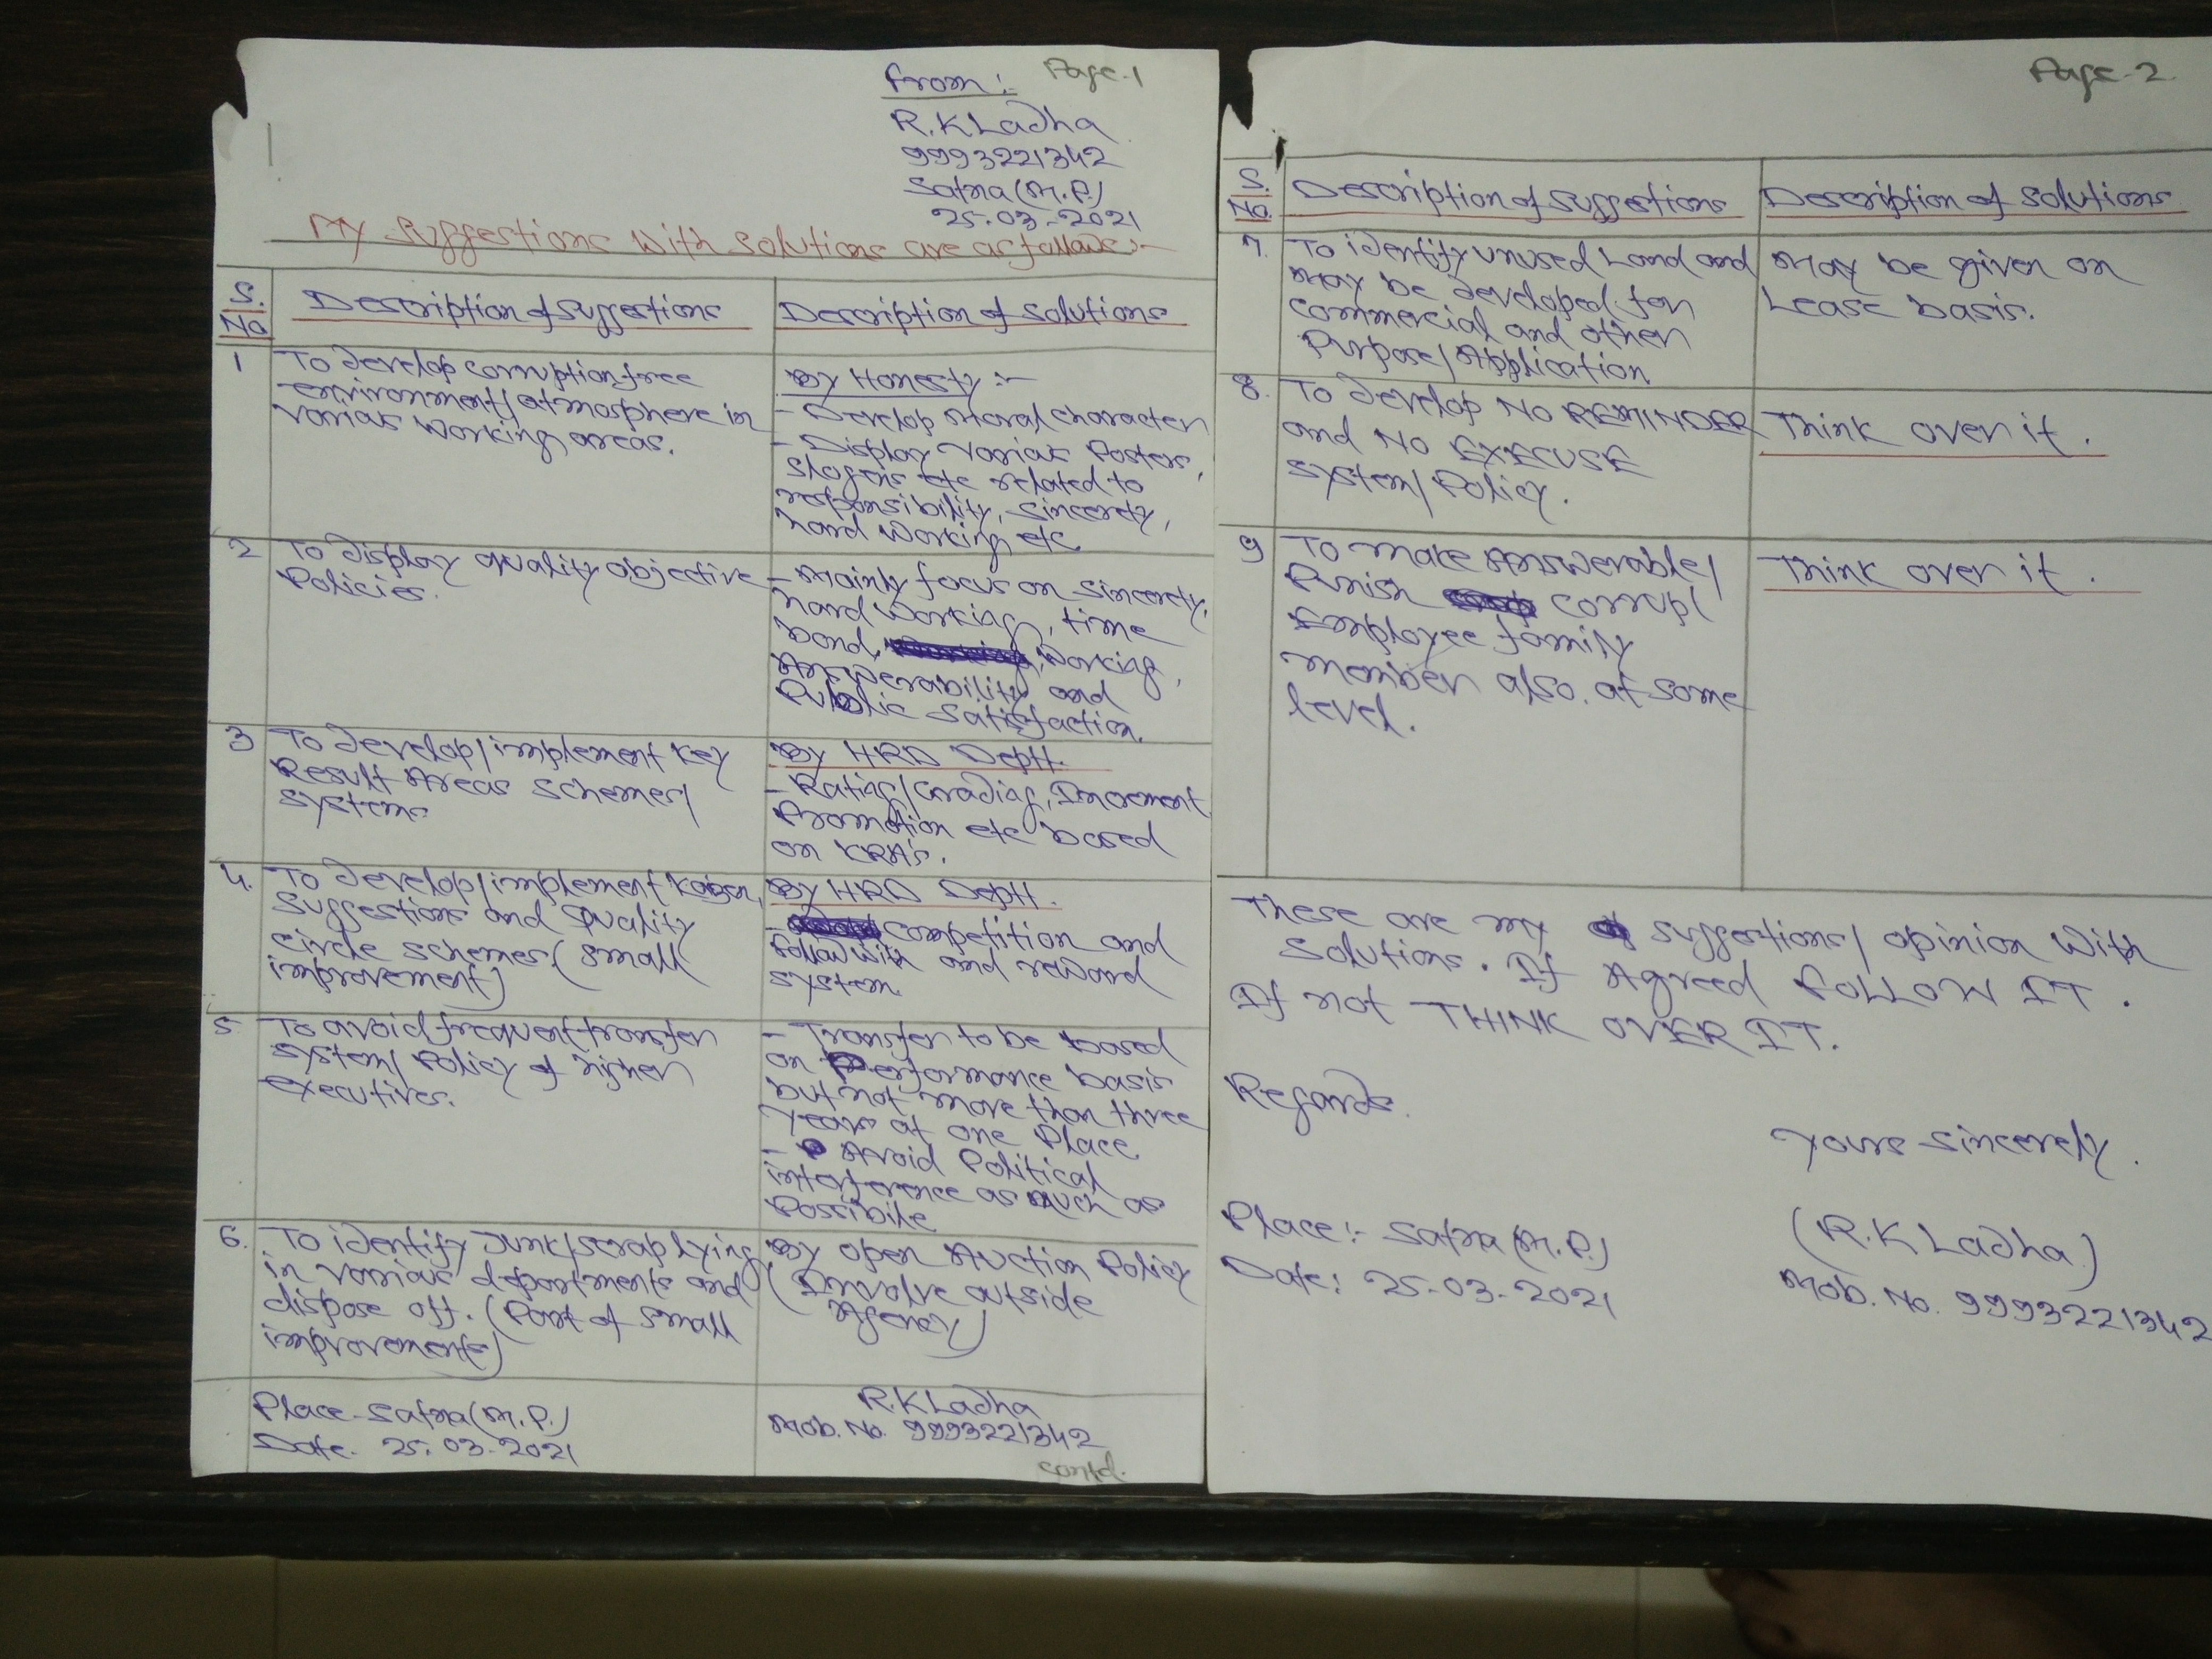 Page-1
From :-
R.K Ladha
9993221342
Satna (M.P.)
25-03-2021
My Suggestions With Solutions are as follows :-
S.
No
Description of Suggestions
Description of Solutions
1
To Develop corruption free
environment/atmosphere in
various Working areas.
By Honesty :-
- Develop Moral Character
- Display Various Posters,
slogens etc related to
responsibility, sincerety,
hard Working etc
2
To Display quality objective
Policies.
- Mainly focus on sincerety,
hard Working, time
bond, Working,
Answerability and
Public Satisfaction.
3
To Develop/implement Key
Result Areas Schemes/
Systems
By HRD Deptt.
- Rating/Grading, Increment
Promotion etc based
on KRA's.
4.
To Develop/implement Kaizen,
Suggestions and Quality
Circle Schemes. (Small
improvement)
By HRD Deptt.
- Competition and
follow with and reward
system.
5
To avoid frequent transfer
System/Policy of higher
executives.
- Transfer to be based
on Performance basis
but not more than three
years at one Place
- Avoid Political
interference as much as
Possibile
6.
To identify Junk/scrap lying
in various departments and
dispose off. (Part of small
improvements)
By open Auction Policy
(Involve outside
Agency)
Place- Satna (M.P.)
Date- 25-03-2021
R.K Ladha
Mob. No. 9993221342
contd.
Page-2
S.
No.
Description of Suggestions
Description of Solutions
7.
To identify unused Land and
May be developed for
commercial and other
Purpose/Application
May be given on
Lease basis.
8.
To develop NO REMINDER
and NO EXECUSE
system/Policy.
Think over it.
9
To make Answerable/
Punish corrupt
Employee family
member also. at some
level.
Think over it.
These are my suggestions/opinion With
Solutions. If Agreed FOLLOW IT.
If not THINK OVER IT.
Regards.
Yours Sincerely.
Place:- Satna (M.P.)
Date: 25-03-2021
(R.K Ladha)
Mob. No. 9993221342